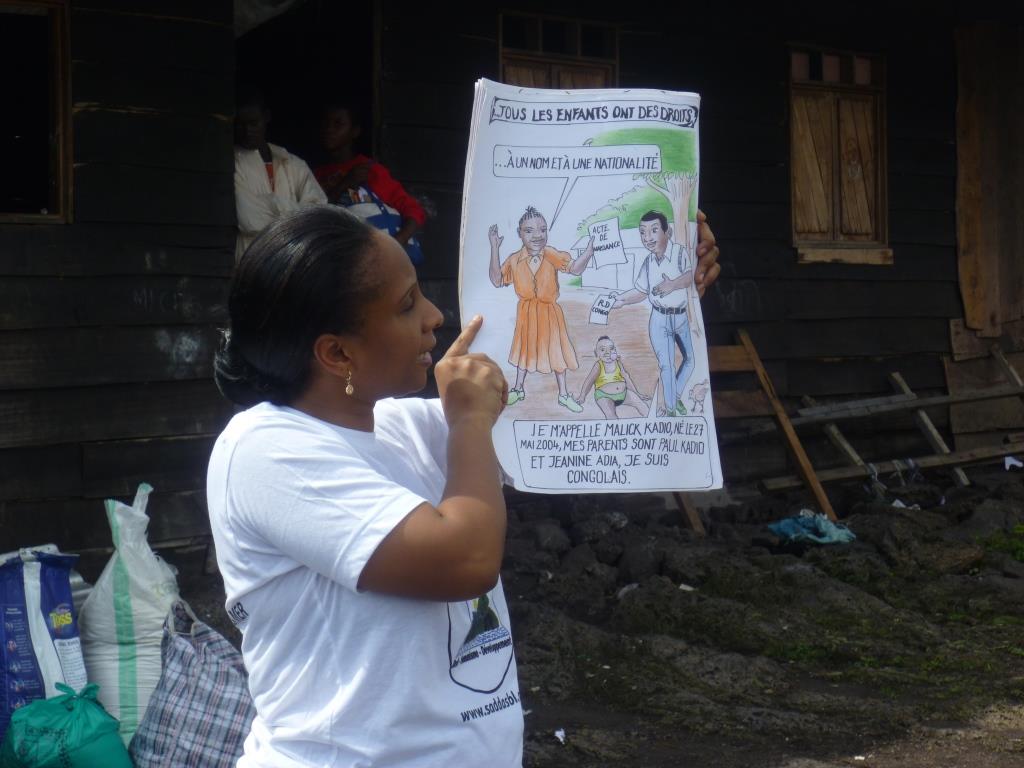 TOUS LES ENFANTS ONT DES DROITS
...À UN NOM ET À UNE NATIONALITÉ
ACTE
DE
NAISSANCE
R.D
CONGO
JE M'APPELLE MALICK KADIO, NÉ LE 27
MAI 2004, MES PARENTS SONT PAUL KADIO
ET JEANINE ADIA, JE SUIS
CONGOLAIS.
Toss
- Développement
www.saddasbl.